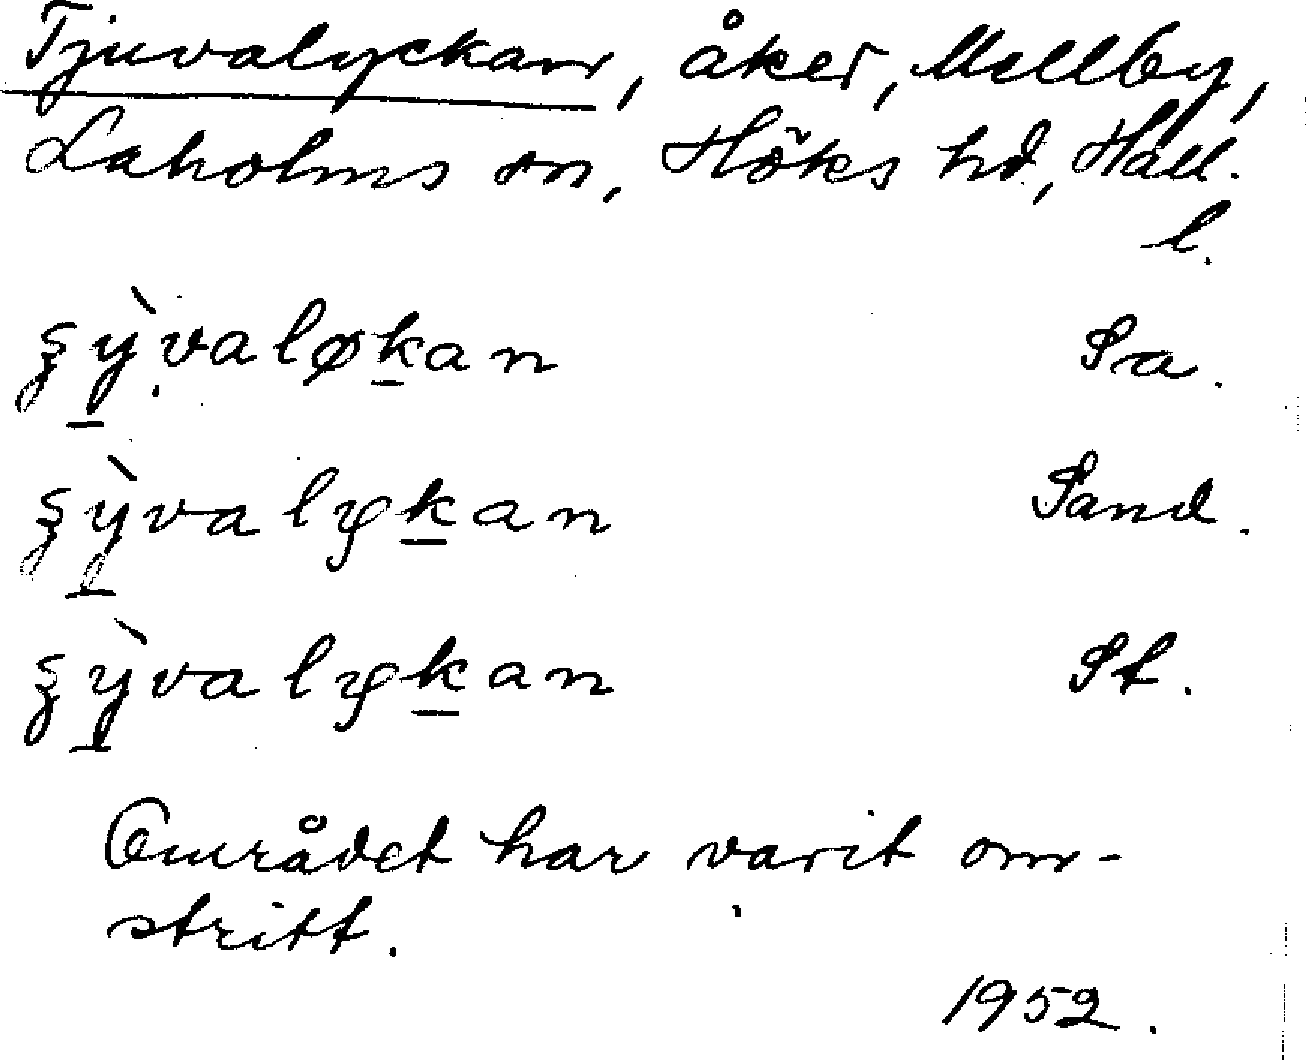 Tjuvalyckan, åker, Mellby,
Laholms sn, Höks hd, Hall.
l.
ʒỳvaløkan Sa.
ʒỳvalykan Sand.
ʒỳvalykan St.
Området har varit om-
stritt.
1952.